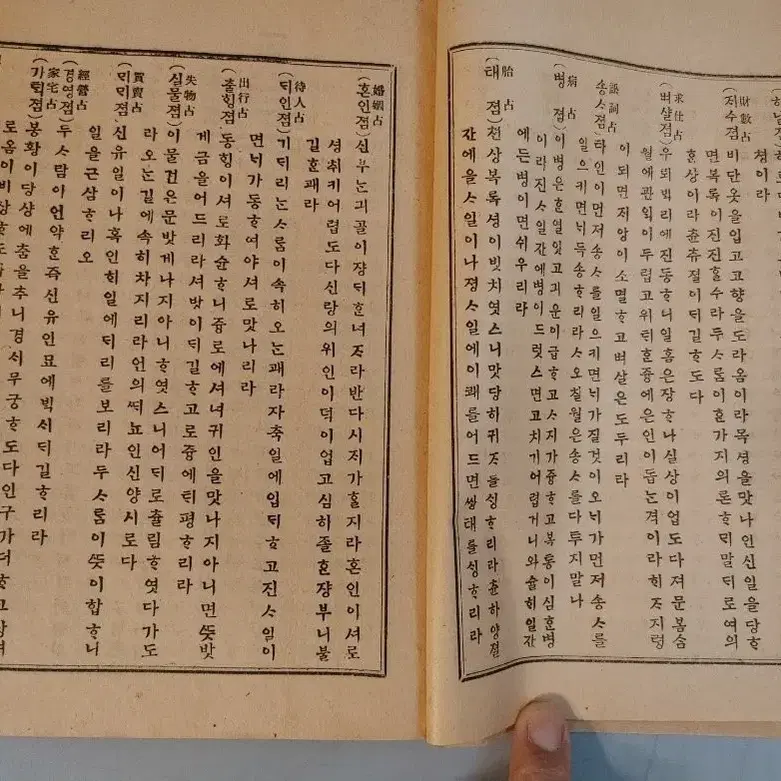 쳥이라
財數占
(ᄌᆡ수졈)비단옷을입고고향을도라옴이라목셩을맛나인신일을당ᄒᆞ
면복록이진진ᄒᆞᆯ수라두ᄉᆞ롬이ᄒᆞᆫ가지의론ᄒᆞᄆᆡ말ᄃᆡ로여의
ᄒᆞᆯ상이라츈츄졀이ᄃᆡ길ᄒᆞ도다
求仕占
(벼살졈)우뢰ᄇᆡᆨ리에진동ᄒᆞ니일홈은장ᄒᆞ나실상이업도다져문봄숨
월애관ᄋᆡᆨ이두렵고위ᄐᆡᄒᆞᆫ즁에은인이돕ᄂᆞᆫ격이라ᄒᆡᄌᆞ지령
이되면저앙이소멸ᄒᆞ고벼살은도두리라
訟詞占
(송ᄉᆞ졈)타인이먼저송ᄉᆞ를일으키면ᄂᆡ가질것이오ᄂᆡ가먼저송ᄉᆞ를
일으키면ᄂᆡ득송ᄒᆞ리라ᄉᆞ오칠월은송ᄉᆞ를다투지말나
病占
(병졈)이병은ᄒᆞᆫ일잇고긔운이급ᄒᆞ고ᄉᆞ지가즁ᄒᆞ고복통이심ᄒᆞᆫ병
이라진ᄉᆞ일간에병이드럿스면고치기어렵거니와슐ᄒᆡ일간
에든병이면쉬우리라
胎占
(태졈)쳔상복록셩이빗치엿스니맛당히귀ᄌᆞ를싱ᄒᆞ리라츈하양졀
잔에올ᄉᆞ일이나졍ᄉᆞ일에이쾌를어드면쌍ᄐᆡ를싱ᄒᆞ리라
婚姻占
(혼인졈)신부ᄂᆞᆫ긔골이쟝ᄃᆡᄒᆞᆫ녀ᄌᆞ라반다시저가ᄒᆞᆯ지라혼인이셔로
셩취키어렵도다신랑의위인이덕이업고심히졸ᄒᆞᆫ쟝부니불
길ᄒᆞᆫ괘라
待人占
(ᄃᆡ인졈)기ᄃᆡ리ᄂᆞᆫᄉᆞ롬이속히오ᄂᆞᆫ괘라자축일에입ᄃᆡᄒᆞ고진ᄉᆞ일이
면ᄂᆡ가동ᄒᆞ여야셔로맛나리라
出行占
(츌ᄒᆡᆼ졈)동ᄒᆡᆼ이셔로화슌ᄒᆞ니즁로에셔녀귀인을맛나지아니면ᄯᅳᆺ밧
게금을어드리라셔밧이ᄃᆡ길ᄒᆞ고로즁에ᄐᆡ평ᄒᆞ리라
失物占
(실물졈)이물건은문밧게나지아니ᄒᆞ엿스니어ᄃᆡ로츌림ᄒᆞ엿다가도
라오ᄂᆞᆫ길에속히차지리라언의ᄯᅢ뇨인신양시로다
買賣占
(ᄆᆡᄆᆡ졈)신유일이나혹인ᄒᆡ일에ᄃᆡ리를보리라두ᄉᆞ롬이ᄯᅳᆺ이합ᄒᆞ니
일을근삼ᄒᆞ리오
經營占
(경영졈)두ᄉᆞ람아언약ᄒᆞᆫ즉신유인묘에빅ᄉᆡᄃᆡ길ᄒᆞ리라
家宅占
(가ᄐᆡᆨ졈)봉황이당샹에춤을추니경ᄉᆡ무궁ᄒᆞ도다인구가더ᄒᆞ고